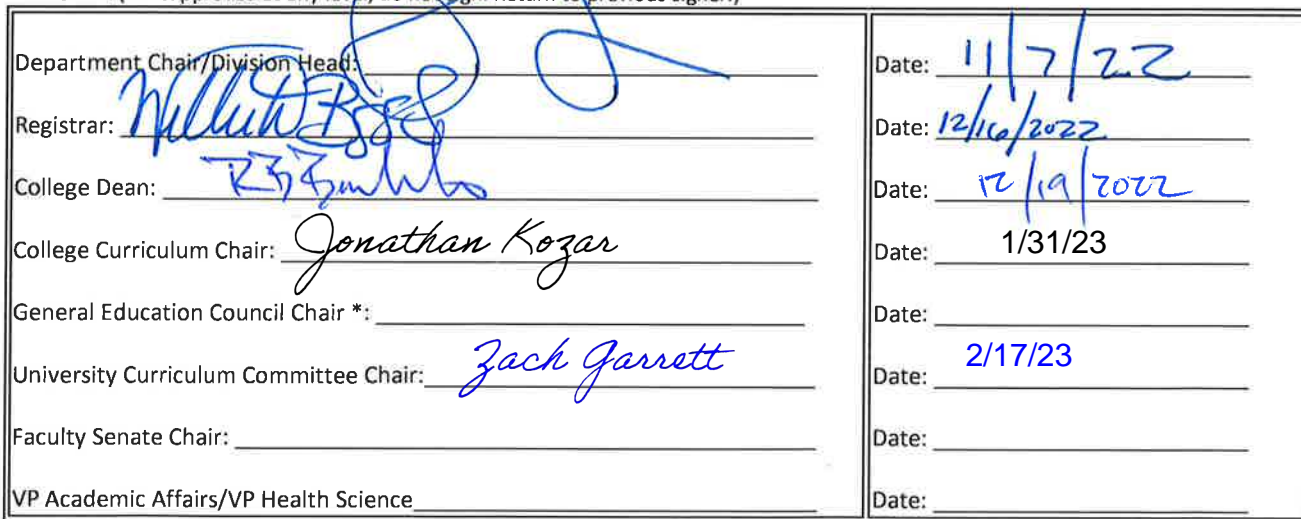 Department Chair/Division Head: Date: 11/7/22
Registrar: Date: 12/16/2022
College Dean: Date: 12/19/2022
College Curriculum Chair: Jonathan Kozar Date: 1/31/23
General Education Council Chair *: Date:
University Curriculum Committee Chair: Zach Garrett Date: 2/17/23
Faculty Senate Chair: Date:
VP Academic Affairs/VP Health Science Date: